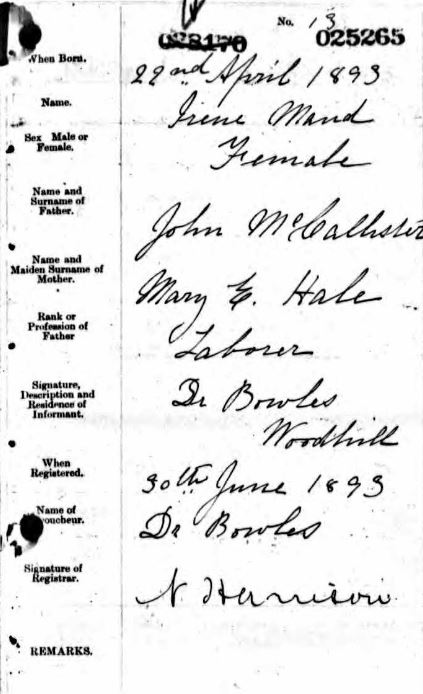 No. 13
028170 025265
When Born. 22nd April 1893
Name. Irene Maud
Sex Male or
Female. Female
Name and
Surname of
Father. John McCallister
Name and
Maiden Surname of
Mother. Mary E. Hale
Rank or
Profession of
Father Laborer
Signature,
Description and
Residence of
Informant. Dr Bowles
Woodhill
When
Registered. 30th June 1893
Name of
oucheur. Dr Bowles
Signature of
Registrar. N Harrison
REMARKS.